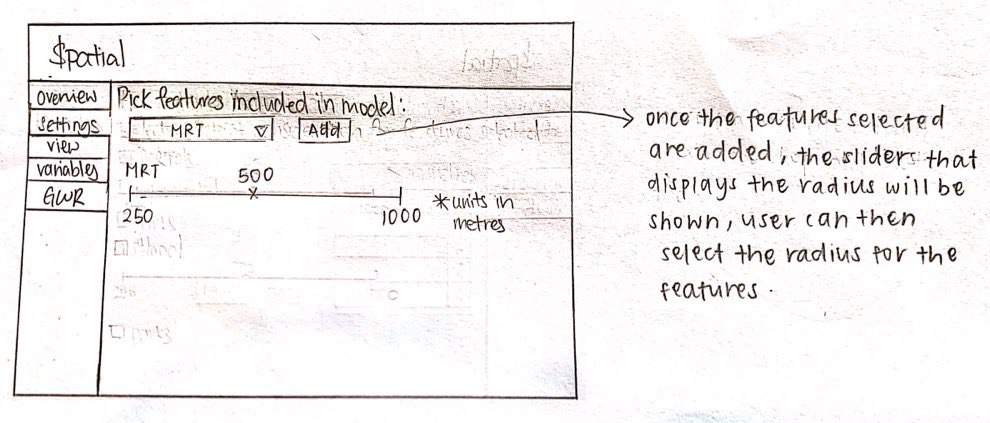 $patial
overview
settings
view
variables
GWR
Pick features included in model:
MRT
Add
MRT
500
250
1000
*units in
metres
once the features selected
are added, the sliders that
displays the radius will be
shown, user can then
select the radius for the
features.